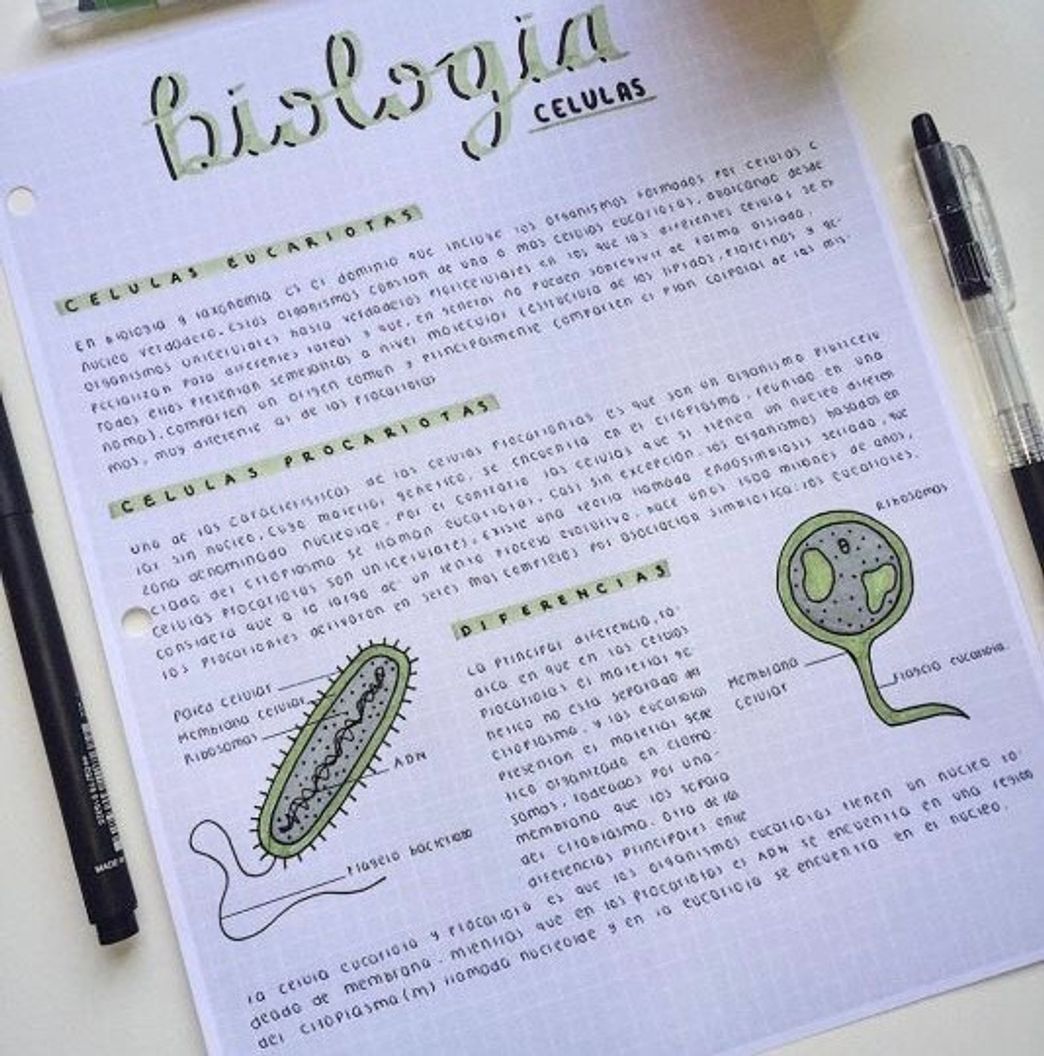 biologia
CELULAS
CELULAS EUCARIOTAS
En biologia y taxonomia es el dominio que incluye los organismos formados por celulas c
nucleo verdadero. Estos organismos constan de una o mas celulas eucariotas, abarcando desde
organismos unicelulares hasta verdaderos pluricelulares en los que las diferentes celulas se es
pecializan para diferentes tareas y que, en general no pueden sobrevivir de forma aislada.
Todos ellos presentan semejanzas a nivel molecular (estructura de los lipidos, proteinas y ge-
noma), comparten un origen comun y principalmente comparten el plan corporal de las mis-
mos, muy diferente al de los procariotas
CELULAS PROCARIOTAS
Una de las caracteristicas de las celulas procariontas es que son un organismo pluricelu
lar sin nucleo, cuyo material genetico, se encuentra en el citoplasma, reunido en una
zona denominada nucleoide. Por el contrario las celulas que si tienen un nucleo diferen
ciado del citoplasma se llaman eucariotas, casi sin excepción, los organismos basados en
celulas procariotas son unicelulares, existe una teoria llamada endosimbiosis seriada, que
considera que a lo largo de un lento proceso evolutivo, hace unos 1500 millones de años,
los procariontes derivaron en seres mas complejos por asociación simbiotica: los eucariotes.
DIFERENCIAS
La principal diferencia, ra-
dica en que en las celulas
procariotas el material ge
netico no esta separado del
citoplasma, y las eucariotas
presentan el material gene
tico organizado en cromo-
somas, rodeados por una
membrana que los separa
del citoplasma. Otra de las
diferencias principales entre
la celula eucariota y procariota es que los organismos eucariotas tienen un nucleo ro-
deado de membrana. mientras que en las procariotas el ADN se encuentra en una region
del citoplasma (m) llamada nucleoide y en la eucariota se encuentra en el nucleo.
Pared celular
Membrana celular
Ribosomas
ADN
Flagelo bacteriano
Ribosomas
Membrana
celular
Flagelo eucariota.